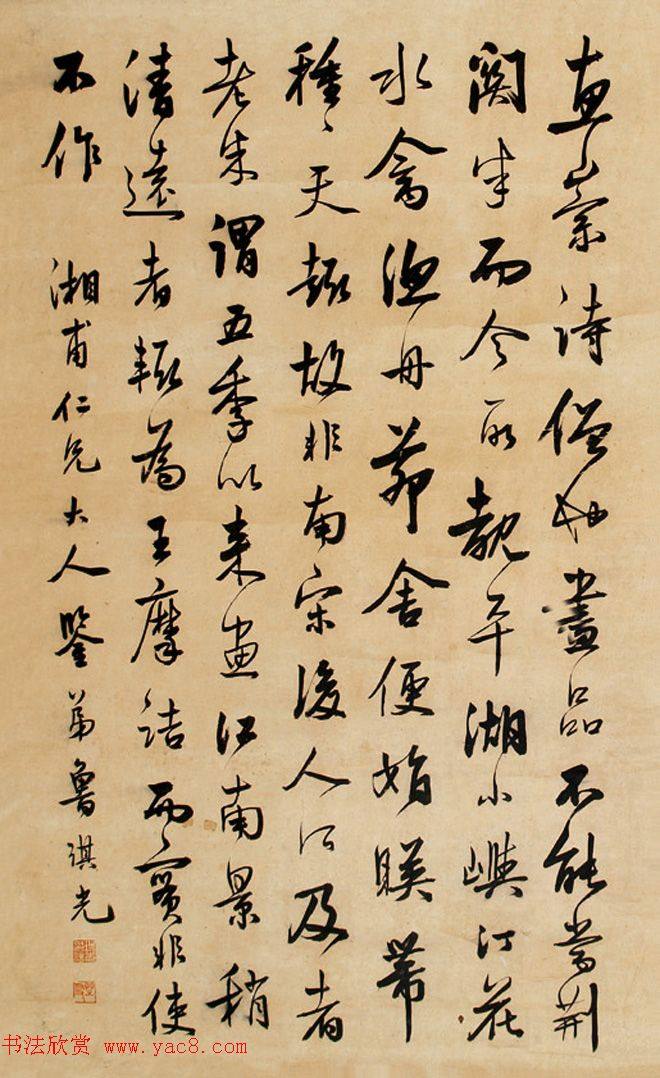 惠崇詩僧也畫品不能當荆
關半而今所觀平湖小嶼汀花
水禽漁舟茆舍便娟映帶
種種天趣故非南宋後人所及者
老朱謂五季以來畫江南景稍
清遠者輒為王摩詰而實非使
不作
湘甫仁兄大人鑒 弟魯琪光
书法欣赏 www.yac8.com